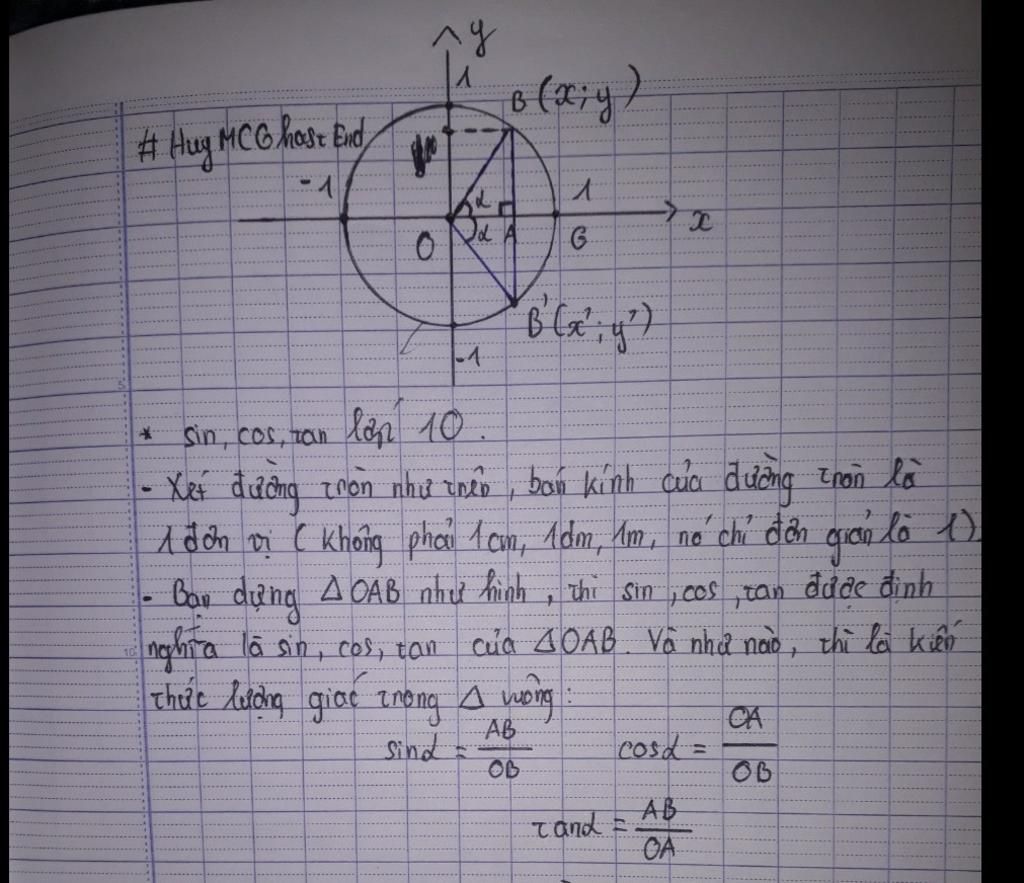 y
1
B (x; y)
# Huy MCG hast End
-1
α
1
O
α
A
G
x
B' (x'; y')
-1
* sin, cos, tan lớp 10.
- Xét đường tròn như trên, bán kính của đường tròn là
1 đơn vị (không phải 1cm, 1dm, 1m, nó chỉ đơn giản là 1)
- Bạn dựng △OAB như hình, thì sin, cos, tan được định
10
nghĩa là sin, cos, tan của △OAB. Và như nào, thì là kiến
thức lượng giác trong △ vuông:
sinα = AB/OB cosα = OA/OB
tanα = AB/OA